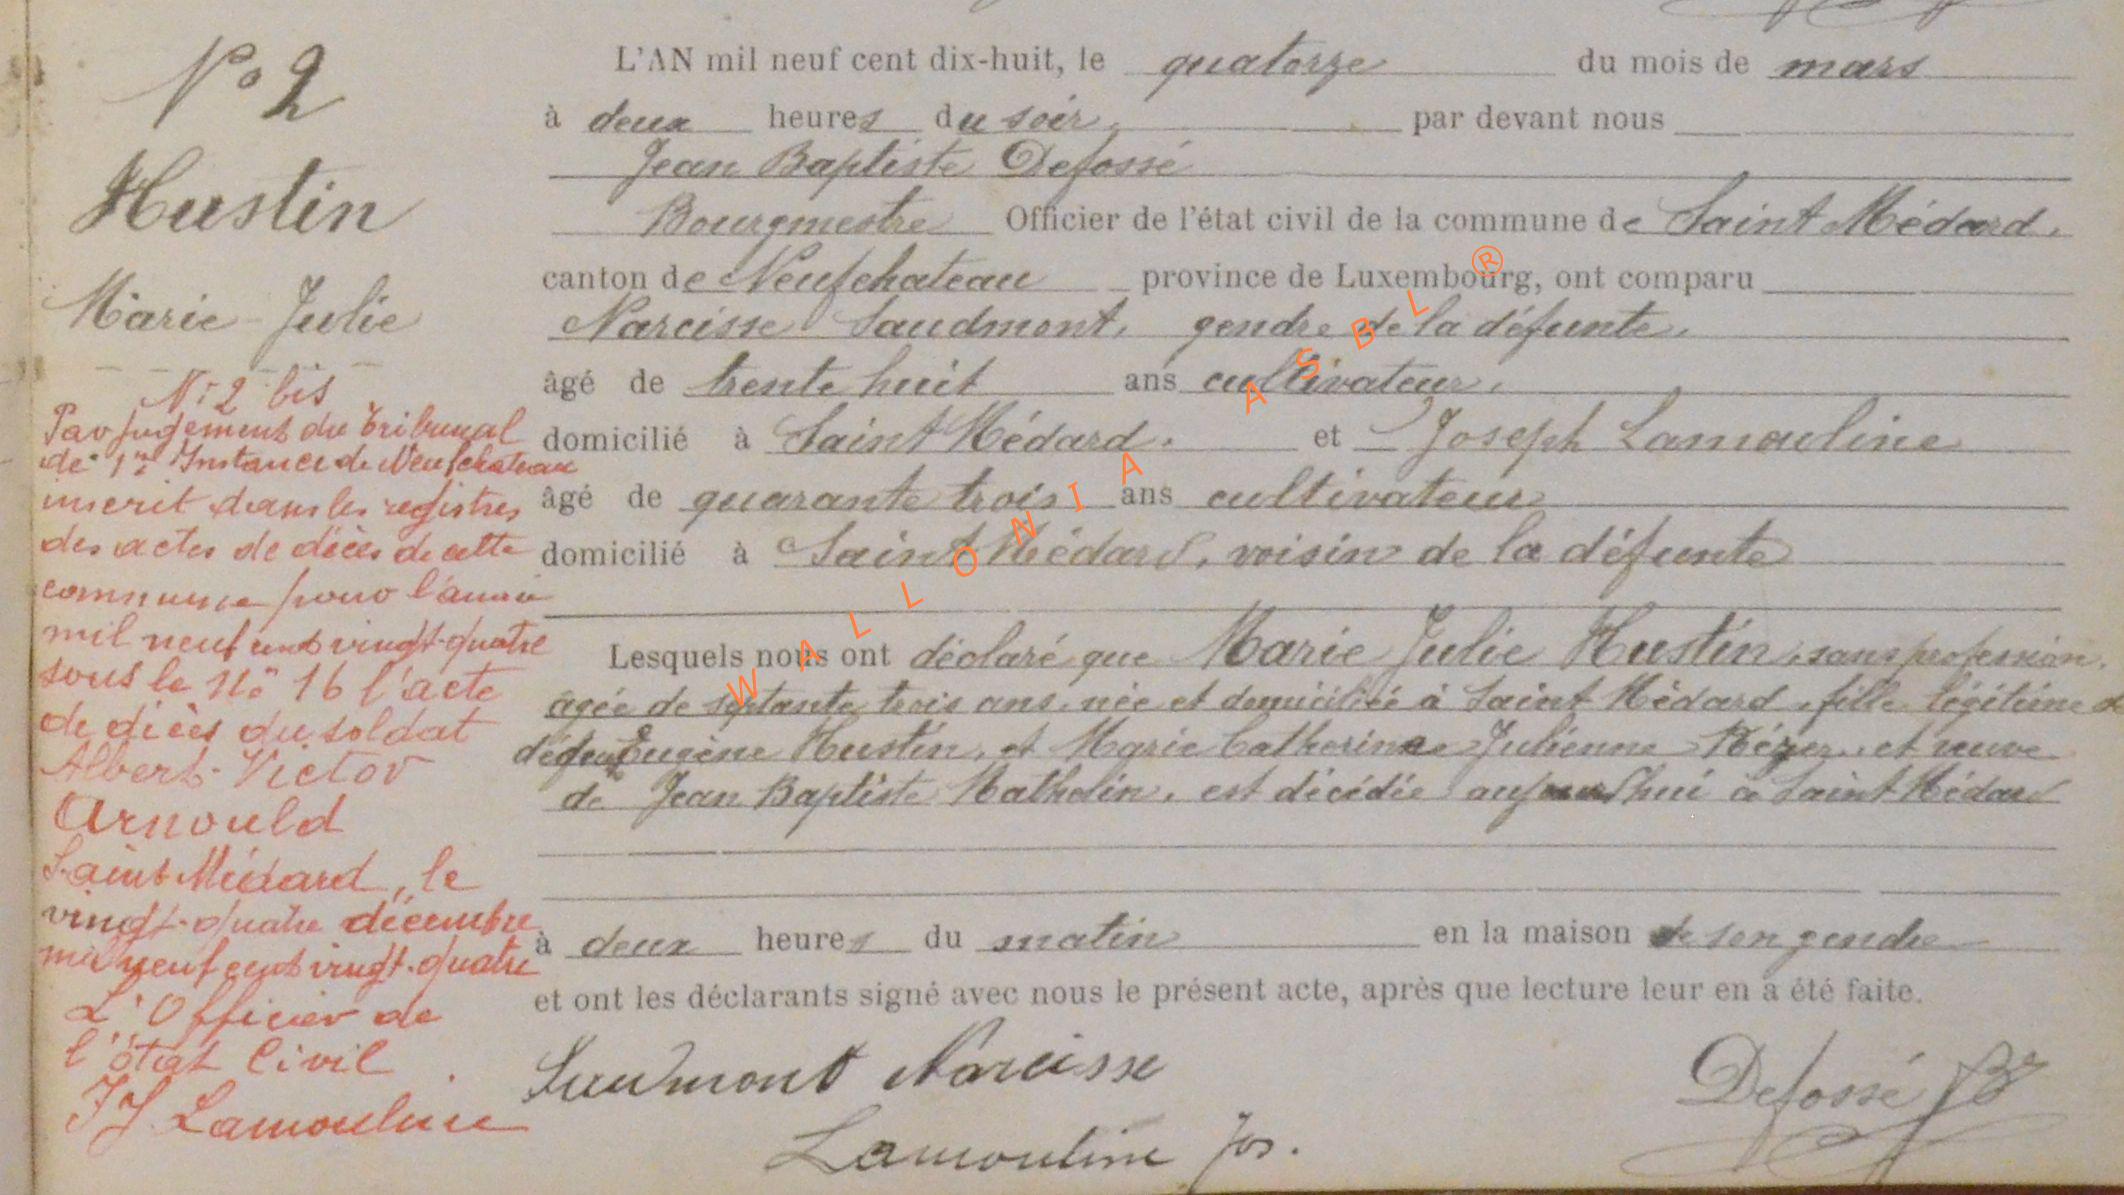 N° 2
Hustin
Marie-Julie
N: 2 bis
Par jugement du Tribunal
de 1re Instance de Neufchateau
inscrit dans les registres
des actes de décès de cette
commune pour l'année
mil neuf cent vingt-quatre
sous le No 16 l'acte
de décès du soldat
Albert-Victor
Arnould
Saint-Médard, le
vingt-quatre décembre
mil neuf cent vingt-quatre
L'Officier de
l'état Civil
JJ Lamouline
L'AN mil neuf cent dix-huit, le quatorze du mois de mars
à deux heures du soir, par devant nous
Jean Baptiste Defossé
Bourgmestre Officier de l'état civil de la commune de Saint Médard.
canton de Neufchateau province de Luxembourg, ont comparu
Narcisse Saudmont, gendre de la défunte,
âgé de trente huit ans cultivateur,
domicilié à Saint Médard. et Joseph Lamouline
âgé de quarante trois ans cultivateur
domicilié à Saint Médard, voisin de la défunte
Lesquels nous ont déclaré que Marie Julie Hustin, sans profession,
âgée de septante trois ans, née et domiciliée à Saint Médard, fille légitime de
Eugène Hustin, et Marie Catherine Julienne et veuve
de Jean Baptiste Mathelin, est décédée aujourd'hui à Saint Médard
à deux heures du matin en la maison de son gendre
et ont les déclarants signé avec nous le présent acte, après que lecture leur en a été faite.
Saudmont Narcisse
Defossé JB
Lamouline Jos.
WALLONIA ASBL ®